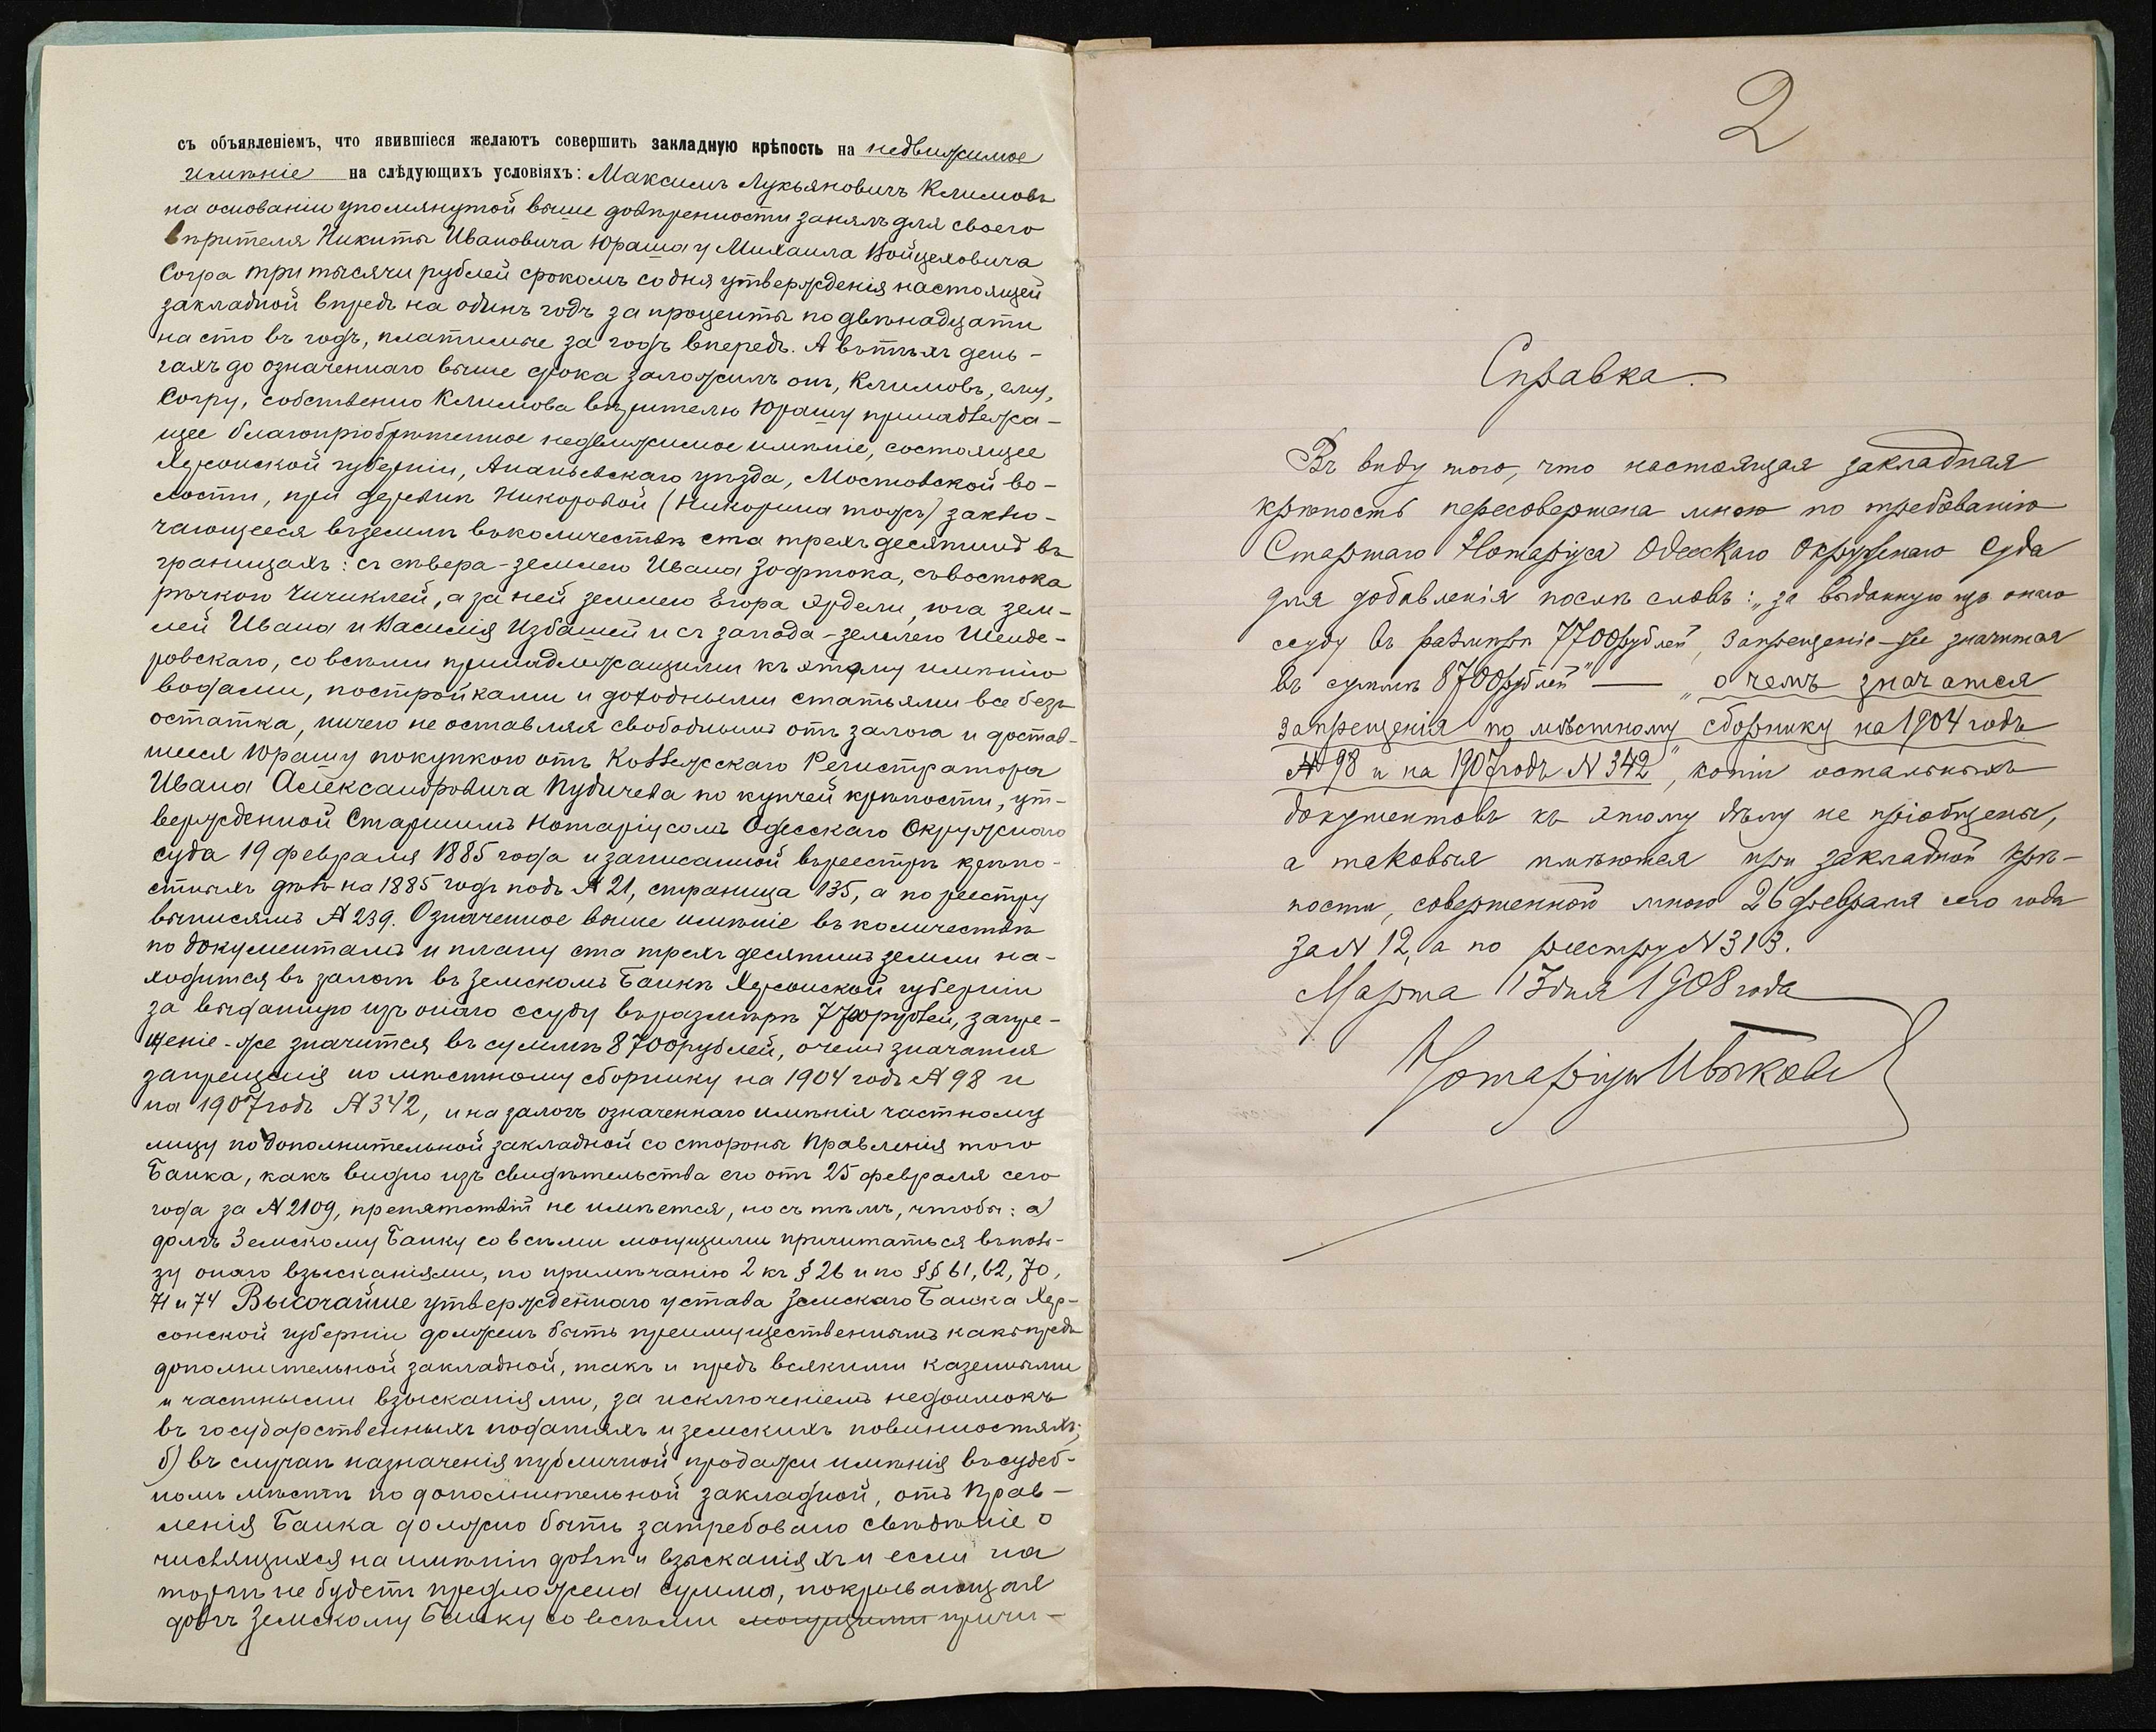 съ объявленіемъ, что явившіеся желаютъ совершить закладную крѣпость на недвижимое
имѣніе на слѣдующихъ условіяхъ: Максимъ Лукьяновичъ Климовъ
на основаніи упомянутой выше довѣренности занялъ для своего
вѣрителя Никиты Ивановича Юраша у Михаила Войцеховича
Согра три тысячи рублей срокомъ со дня утвержденія настоящей
закладной впредь на одинъ годъ за проценты по двѣнадцати
на сто въ годъ, платимые за годъ впередъ. А въ тѣхъ день-
гахъ до означеннаго выше срока заложилъ онъ, Климовъ, ему,
Согру, собственно Климова вѣрителю Юрашу принадлежа-
щее благопріобрѣтенное недвижимое имѣніе, состоящее
Херсонской губерніи, Ананьевскаго уѣзда, Мостовской во-
лости, при деревнѣ Никоровой (Никорина тожъ) заклю-
чающееся въ землѣ въ количествѣ ста трехъ десятинъ въ
границахъ: съ сѣвера - землею Ивана Зофтока, съ востока
рѣчкою Чичиклей, а за ней землею Егора Ярдели, юга зем-
лей Ивана и Василія Избашей и съ запада - землею Шенде-
ровскаго, со всѣми принадлежащими къ этому имѣнію
водами, постройками и доходными статьями все безъ
остатка, ничего не оставляя свободнымъ отъ залога и достав-
шееся Юрашу покупкою отъ Коллежскаго Регистратора
Ивана Александровича Пудичева по купчей крѣпости, ут-
вержденной Старшимъ Нотаріусомъ Одесскаго Окружнаго
суда 19 февраля 1885 года и записанной въ реестрѣ крѣпо-
стныхъ дѣлъ на 1885 годъ подъ № 21, страница 135, а по реестру
выписямъ № 239. Означенное выше имѣніе въ количествѣ
по документамъ и плану ста трехъ десятинъ земли на-
ходится въ залогѣ въ Земскомъ Банкѣ Херсонской губерніи
за выданную изъ онаго ссуду въ размѣрѣ 7700 рублей, запре-
щеніе-же значится въ суммѣ 8700 рублей, о чемъ значатся
запрещенія по мѣстному сборнику на 1904 годъ № 98 и
на 1907 годъ № 342, и на залогъ означеннаго имѣнія частному
лицу по дополнительной закладной со стороны Правленія того
Банка, какъ видно изъ свидѣтельства его отъ 25 февраля сего
года за № 2109, препятствій не имѣется, но съ тѣмъ, чтобы: а)
долгъ Земскому Банку со всѣми могущими причитаться въ поль-
зу онаго взысканіями, по примѣчанію 2 къ § 26 и по §§ 61, 62, 70,
71 и 74 Высочайше утвержденнаго устава Земскаго Банка Хер-
сонской губерніи долженъ быть преимущественнымъ какъ предъ
дополнительной закладной, такъ и предъ всякими казенными
и частными взысканіями, за исключеніемъ недоимокъ
въ государственныхъ податяхъ и земскихъ повинностяхъ;
б) въ случаѣ назначенія публичной продажи имѣнія въ судеб-
номъ мѣстѣ по дополнительной закладной, отъ Прав-
ленія Банка должно быть затребовано свѣдѣніе о
числящихся на имѣніи долгѣ и взысканіяхъ и если на
торгѣ не будетъ предложена сумма, покрывающая
долгъ Земскому Банку со всѣми могущими причи-
2
Справка.
Въ виду того, что настоящая закладная
крѣпость пересовершена мною по требованію
Старшаго Нотаріуса Одесскаго Окружнаго Суда
для добавленія послѣ словъ: „за выданную изъ онаго
ссуду въ размѣрѣ 7700 рублей, запрещеніе-же значится
въ суммѣ 8700 рублей" — „о чемъ значатся
запрещенія по мѣстному сборнику на 1904 годъ
№ 98 и на 1907 годъ № 342", копіи остальныхъ
документовъ къ этому дѣлу не пріобщены,
а таковыя имѣются при закладной крѣ-
пости, совершенной мною 26 февраля сего года
за № 12, а по реестру № 313.
Марта 13 дня 1908 года
Нотаріусъ Ивѣковъ